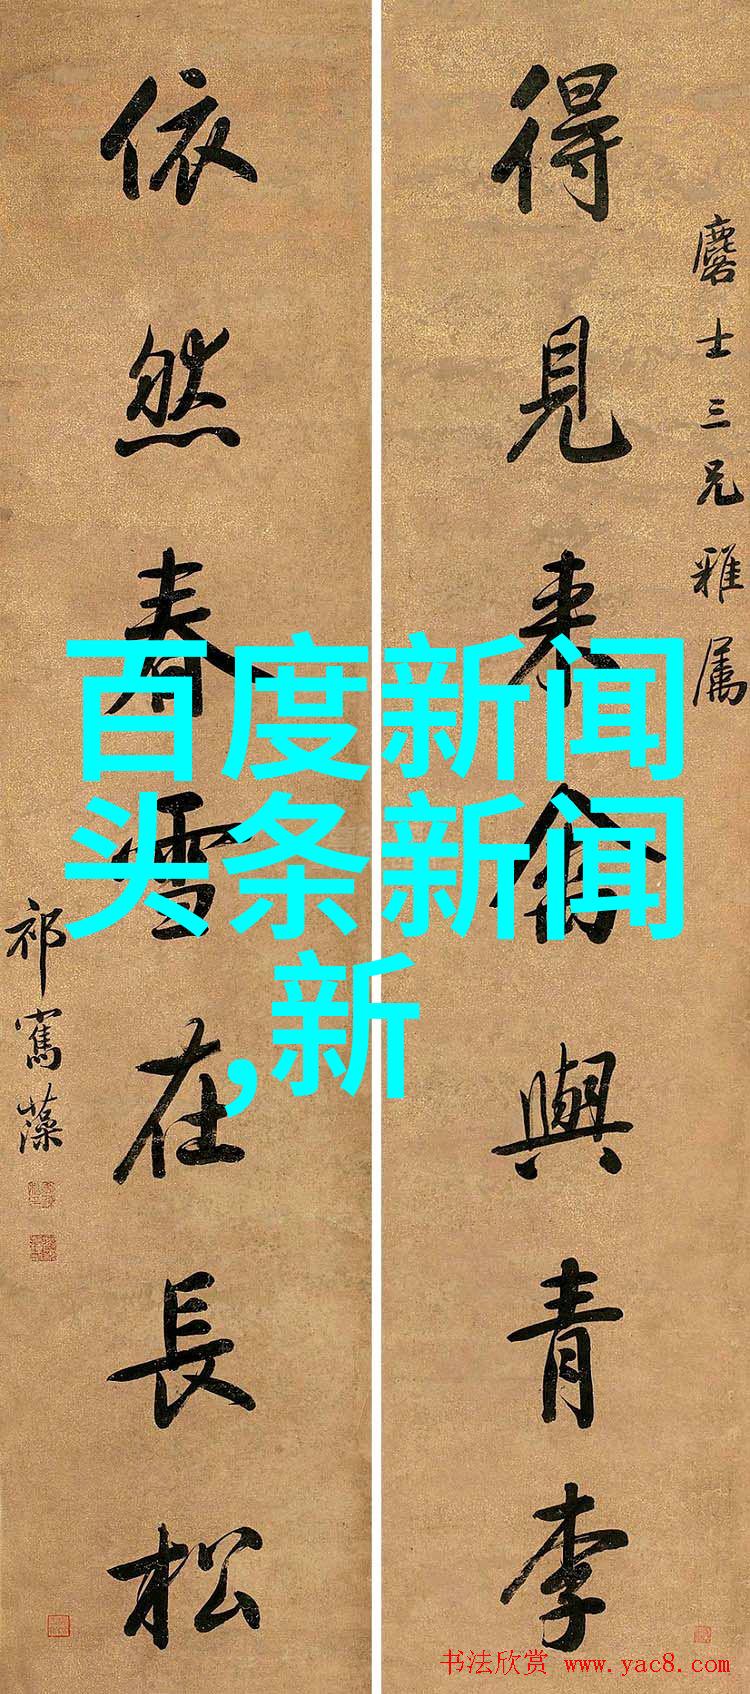 麐士三兄雅属
得見来禽與青李
依然春雪在長松
祁寯藻
百度新闻
头条新闻
,新
书法欣赏 www.yac8.com